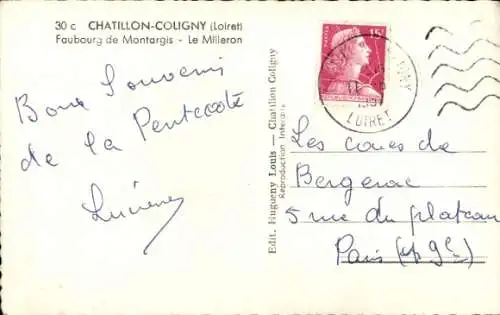 30 c CHATILLON-COLIGNY (Loiret)
Faubourg de Montargis - Le Milleron
Bons Souvenirs
de la Pentecôte
Lucienne
Edit. Hugueny Louis — Chatillon Coligny
Reproduction Interdite
15F
LOIRET
Les caves de
Bergerac
5 rue du plateau
Paris